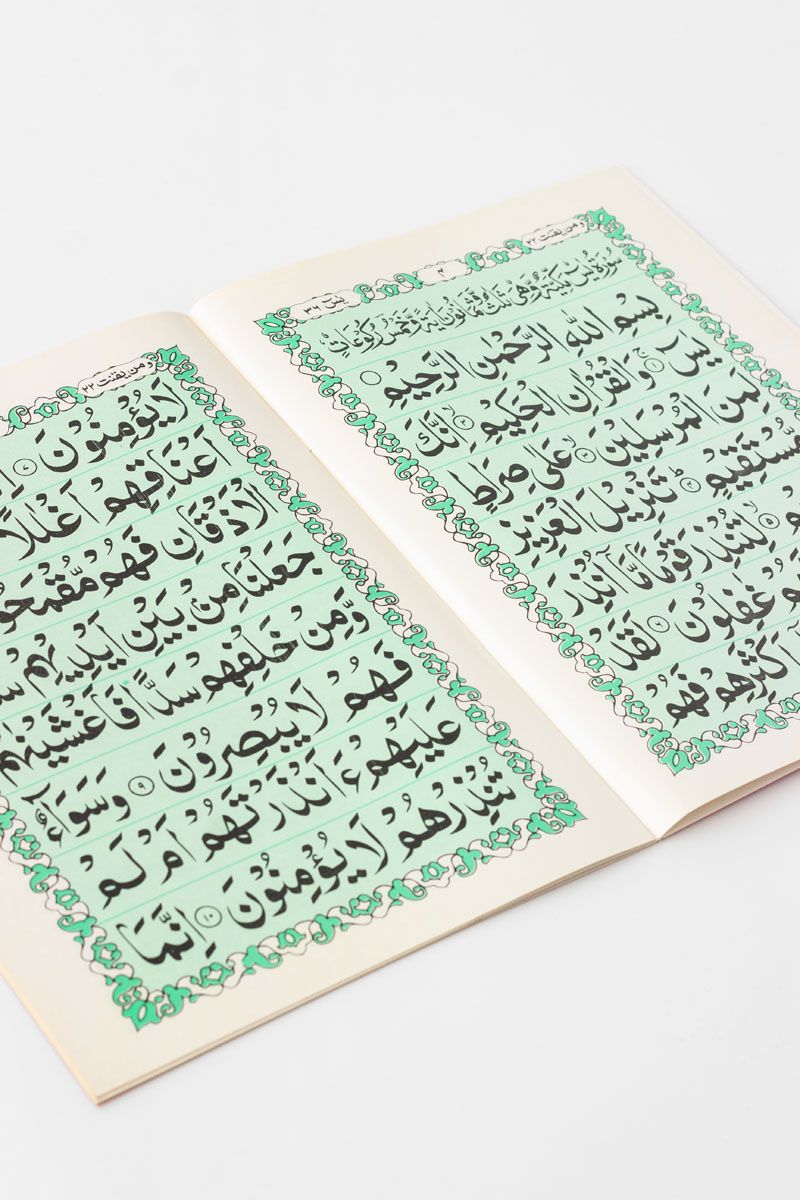 ومن يقنت ٢٢
٢
يٰسٓ ٣٦
سُوْرَةُ يٰسٓ مَكِّيَّةٌ وَّهِيَ ثَلٰثٌ وَّثَمَانُوْنَ اٰيَةً وَّخَمْسُ رُكُوْعَاتٍ
بِسْمِ اللّٰهِ الرَّحْمٰنِ الرَّحِيْمِ
يٰسٓ ۝١ وَالْقُرْاٰنِ الْحَكِيْمِ ۝٢ اِنَّكَ
لَمِنَ الْمُرْسَلِيْنَ ۝٣ عَلٰى صِرَاطٍ
مُّسْتَقِيْمٍ ۝٤ تَنْزِيْلَ الْعَزِيْزِ
۝٥ لِتُنْذِرَ قَوْمًا مَّاۤ اُنْذِرَ
غٰفِلُوْنَ ۝٦ لَقَدْ
اَكْثَرِهِمْ فَهُمْ
ومن يقنت ٢٢
لَا يُؤْمِنُوْنَ ۝٧
اَعْنَاقِهِمْ اَغْلٰلًا
الْاَذْقَانِ فَهُمْ مُّقْمَحُوْ
جَعَلْنَا مِنْۢ بَيْنِ اَيْدِيْهِمْ
وَّمِنْ خَلْفِهِمْ سَدًّا فَاَغْشَيْنٰهُمْ
فَهُمْ لَا يُبْصِرُوْنَ ۝٩ وَسَوَآءٌ
عَلَيْهِمْ ءَاَنْذَرْتَهُمْ اَمْ لَمْ
تُنْذِرْهُمْ لَا يُؤْمِنُوْنَ ۝١٠ اِنَّمَا